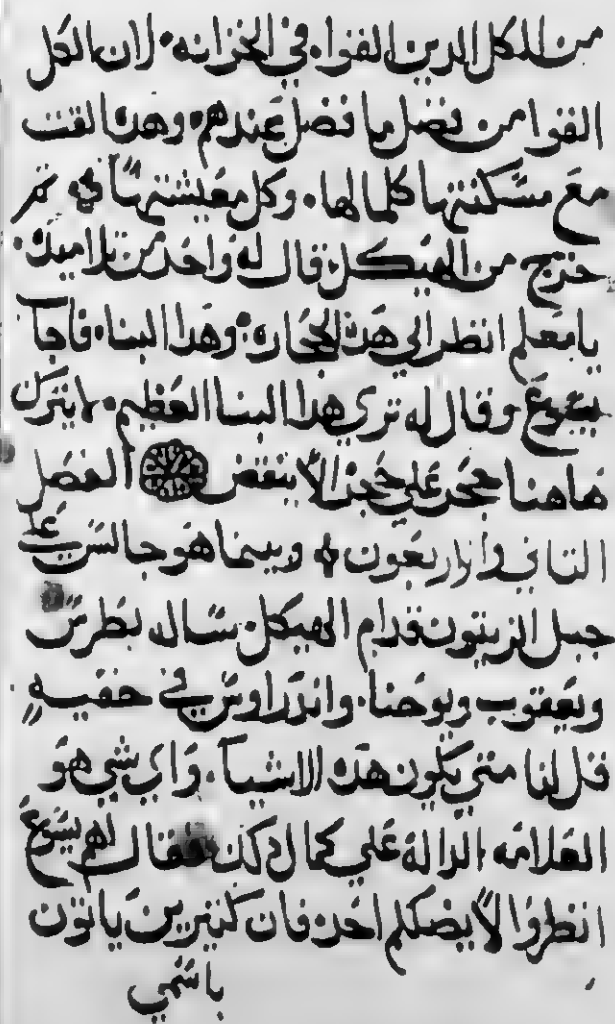 من الكل الدين القوا في الخزانه٠ لان الكل
القوا من فضل ما فضل عندهم٠ وهده القت
مع مسكنتها كلما لها٠ وكل معيشتها
خرج من الهيكل قال له واحد من تلاميده٠
يا معلم انظر الي هده الحجاره٠ وهدا البنا٠ فاجاب
يسوع وقال له تري هدا البنا العظيم٠ لا يترك
هاهنا حجر علي حجر الا ينقض الفصل
التاني واربعون وبينما هو جالس علي
جبل الزيتون قدام الهيكل٠ ساله بطرس
ويعقوب ويوحنا٠ واندراوس في خفيه
قل لنا متي يكون هده الاشيا٠ واي شي هو
العلامه الداله علي كمال دلك فقال لهم يسوع
انظروا لا يضلكم احد٠ فان كتيرين ياتون
باسمي